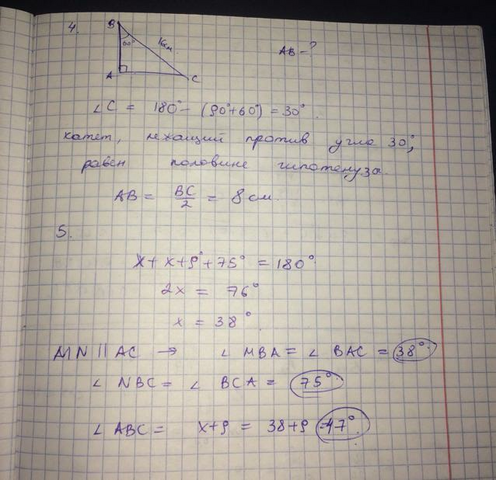 4.
B
60°
16см
A
C
AB - ?
∠C = 180° - (90°+60°) = 30°.
катет, лежащий против угла 30°,
равен половине гипотенуза.
AB = BC/2 = 8 см
5.
x + x + 9° + 75° = 180°.
2x = 76°
x = 38°.
MN || AC → ∠ MBA = ∠ BAC = 38°.
∠ NBC = ∠ BCA = 75°.
∠ ABC = x+9 = 38+9 = 47°.